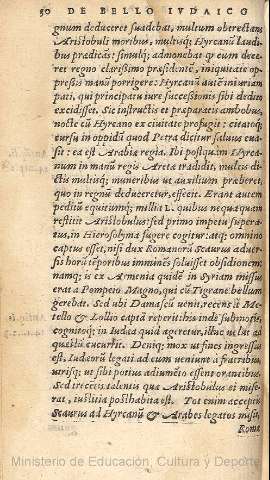 50 DE BELLO IVDAICO
gnum deduceret suadebat, multum obtrectans
Aristobuli moribus, multisq; Hyrcanũ laudi-
bus prædicãs: simulq; admonebat qr eum dece-
ret regno clarissimo præsidentẽ, iniquitatis op-
pressis manũ porrigere: Hyrcanũ autẽ iniuriam
pati, qui principatu iure successionis sibi debito
excidisset. Sic instructis et præparatis ambobus,
nocte cũ Hyrcano ex ciuitate profugit: citatoq;
cursu in oppidũ quod Petra dicitur saluus eua-
sit: ea est Arabiæ regia. Ibi postquam Hyrca-
num in manũ regis Aretæ tradidit, multis di-
ctis multisq; muneribus ut auxilium præberet,
quo in regnũ deduceretur, effecit. Erant autem
peditũ equitumq;
restitit Aristobulus: sed primo impetu supera-
tus, in Hierosolyma fugere cogitur: atq; omnino
captus esset, nisi dux Romanorũ Scaurus aduer-
sis horũ tẽporibus imminẽs soluisset obsidionem:
namq; is ex Armenia quidẽ in Syriam missus
erat a Pompeio Magno, qui cũ Tigrane bellum
gerebat. Sed ubi Damascũ uenit, recens it Me-
tello & Lollio captã reperit: his inde submotis,
cognitoq; in Iudæa quid ageretur, illuc uelut ad
quæstũ cucurrit. Deniq; mox ut fines ingressus
est, Iudæorũ legati ad eum ueniunt a fratribus,
utrisq; ut sibi potius adiumẽto essent orantibus.
Sed trecẽtis talentis quæ Aristobulus ei mise-
rat, iustitia posthabita est. Tot enim acceptis
Scaurus ad Hyrcanũ & Arabes legatos misit,
Roma
Ministerio de Educación, Cultura y Deporte